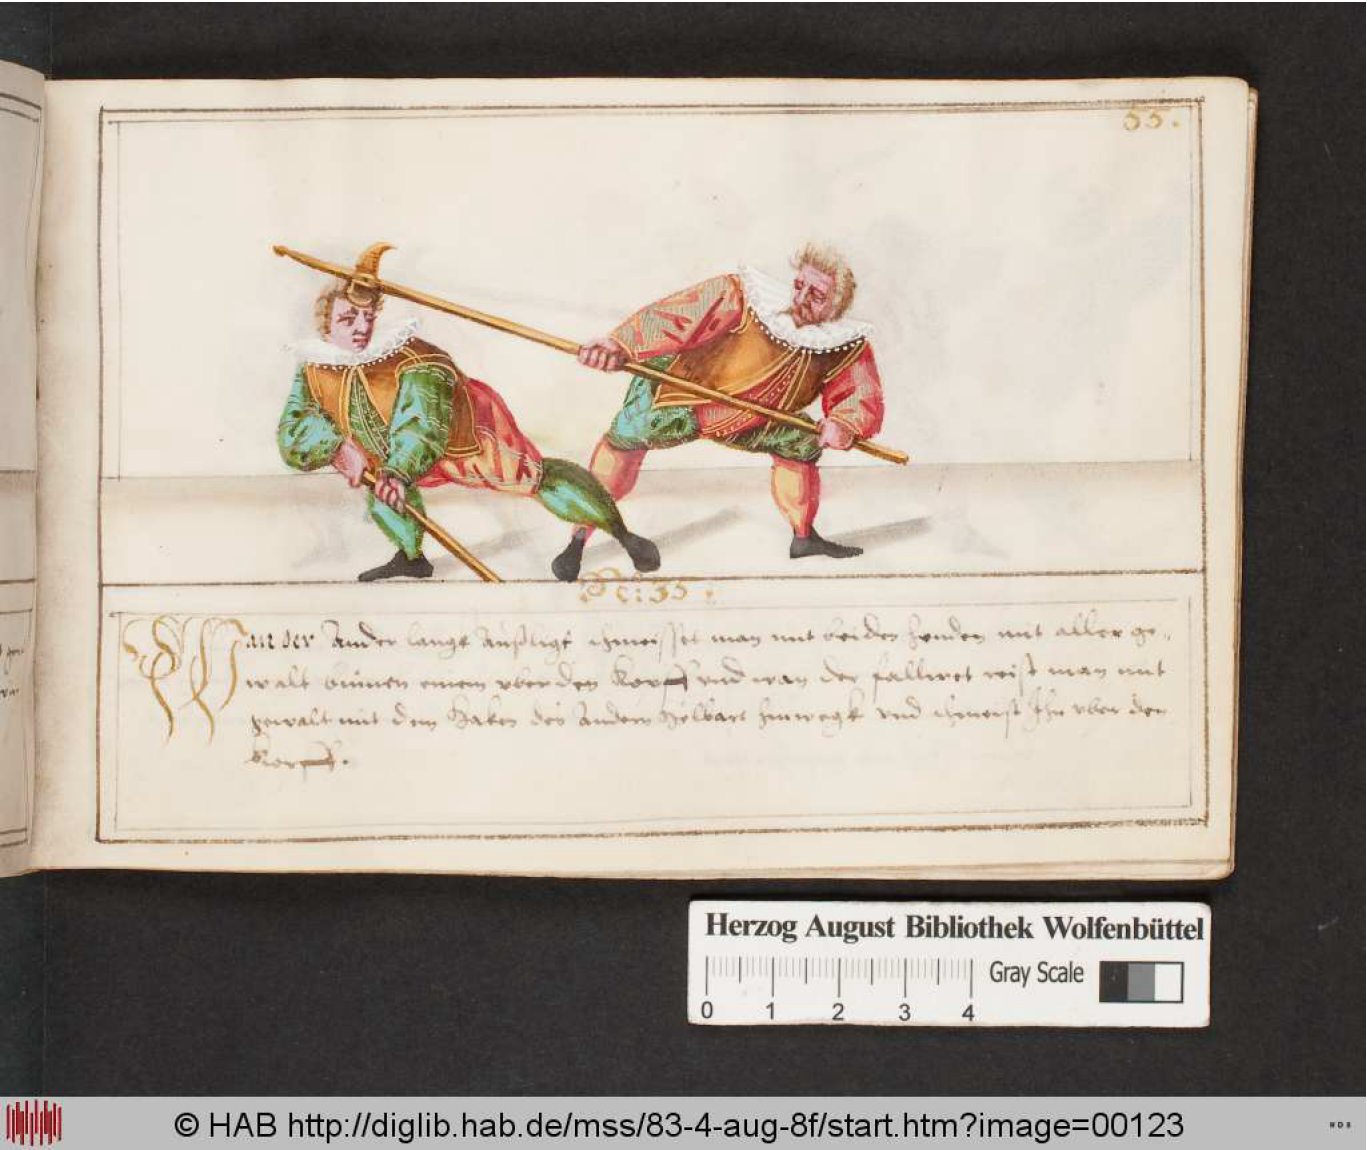 55.
No: 35.
Wan der Ander langk Außligt schmeisset man mit beiden henden mit aller ge-
walt binnen einem vber den Kopff vnd wan der fallwet reist man mit
gewalt mit dem Haken des Andern Helbart hinwegk vnd schmeist Ihn vber den
Kopff.
Herzog August Bibliothek Wolfenbüttel
Gray Scale
0 1 2 3 4
© HAB http://diglib.hab.de/mss/83-4-aug-8f/start.htm?image=00123